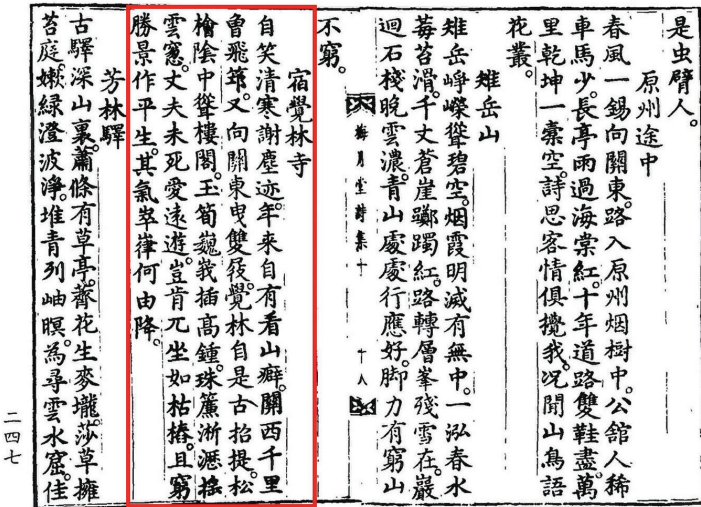 是虫臂人。
原州途中
春風一錫向關東。路入原州烟樹中。公舘人稀
車馬少。長亭雨過海棠紅。十年道路雙鞋盡。萬
里乾坤一橐空。詩思客情俱攪我。况聞山鳥語
花叢。
雉岳山
雉岳崢嶸聳碧空。烟霞明滅有無中。一泓春水
莓苔滑。千丈蒼崖躑躅紅。路轉層峯殘雪在。巖
迴石棧晚雲濃。青山處處行應好。脚力有窮山
不窮。
梅月堂詩集十 十八
宿覺林寺
自笑清寒謝塵迹。年来自有看山癖。關西千里
魯飛筇。又向關東曳雙屐。覺林自是古招提。松
檜陰中聳樓閣。玉筍巍峩插高鍾。珠簾淅瀝搖
雲窓。丈夫未死愛遠遊。豈肯兀坐如枯樁。且窮
勝景作平生。其氣崒嵂何由降。
芳林驛
古驛深山裏。蕭條有草亭。薺花生麥壠。莎草擁
苔庭。嫩綠澄波淨。堆青列岫暝。為尋雲水窟。佳
二四七